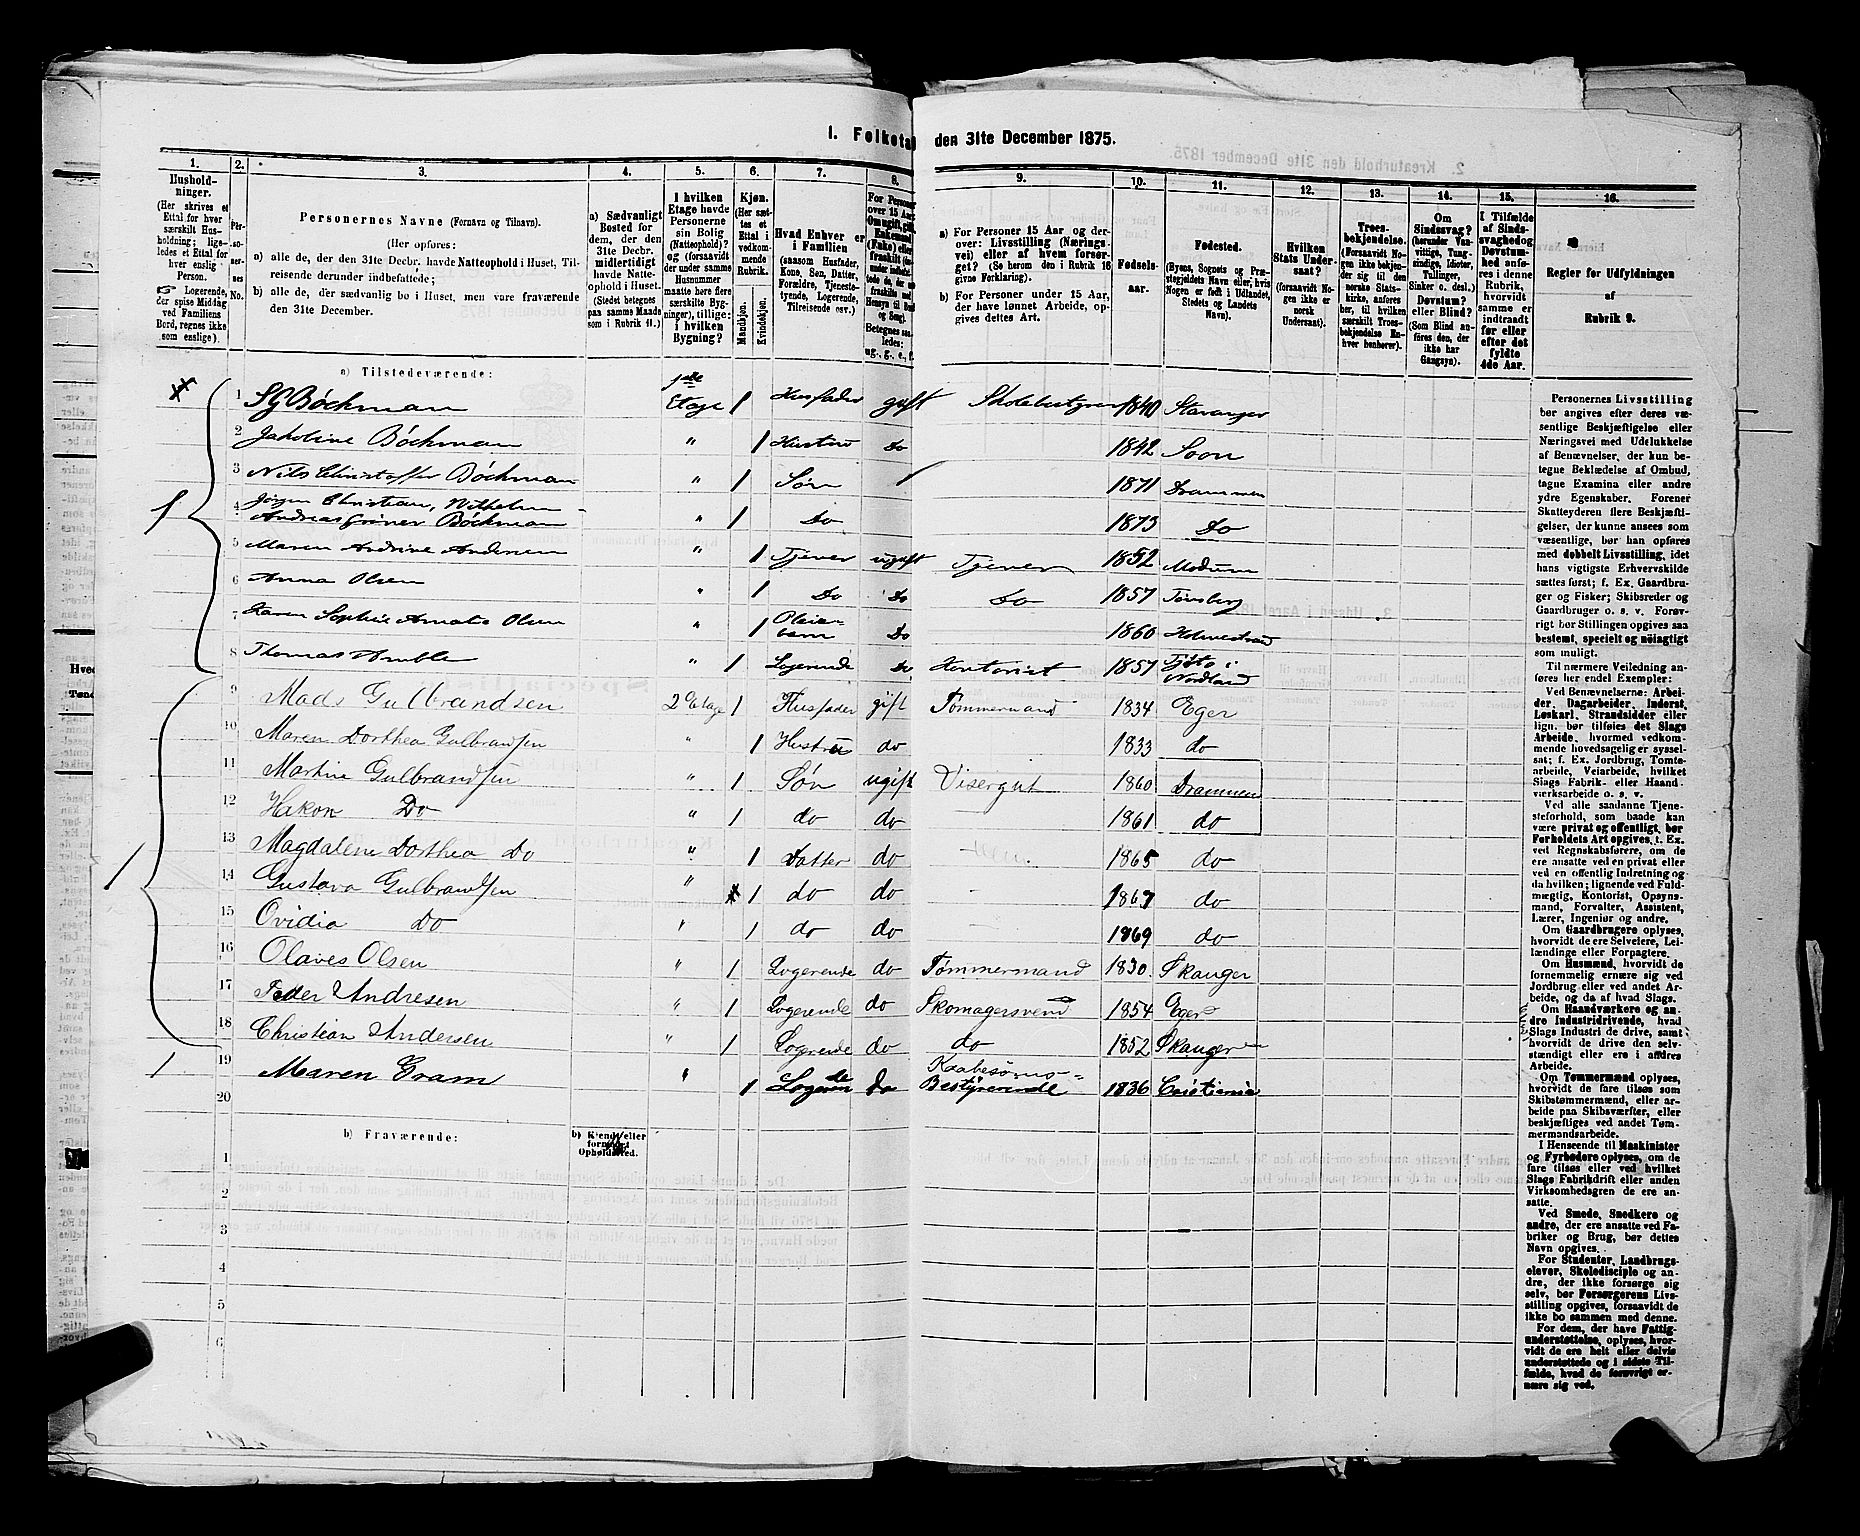 1. Folketal den 31te December 1875.
1. 2. 3. 4. 5. 6. 7. 8. 9. 10. 11. 12. 13. 14. 15. 16.
Husholdninger. (Her skrives et Ettal for hver særskilt Husholdning; ligeledes et Ettal for hver enslig Person. Logerende, der spise Middag ved Familiens Bord, regnes ikke som enslige).
Personernes No.
Personernes Navne (Fornavn og Tilnavn).
(Her opføres:
a) alle de, der den 31te Decbr. havde Natteophold i Huset, Tilreisende derunder indbefattede;
b) alle de, der sædvanlig bo i Huset, men vare fraværende den 31te December.
a) Sædvanligt Bosted for dem, der den 31te Decbr. midlertidigt havde Natteophold i Huset. (Stedet betegnes paa samme Maade som i Rubrik 11.)
I hvilken Etage havde Personerne sin Bolig (Natteophold)? og (forsaavidt der under samme Husnummer maatte være flere særskilte Bygninger), tillige: i hvilken Bygning?
Kjøn. (Her sættes et Ettal i vedkommende Rubrik. Mandkjøn. Kvindekjøn.
Hvad Enhver er i Familien (saasom Husfader, Kone, Søn, Datter, Forældre, Tjenestetyende, Logerende, Tilreisende osv.)
a) For Personer 15 Aar og derover: Livsstilling (Næringsvei) eller af hvem forsørget? (Se herom den i Rubrik 16 givne Forklaring).
b) For Personer under 15 Aar, der have lønnet Arbeide, opgives dettes Art.
Fødselsaar.
Fødested. (Byens, Sognets og Præstegjeldets Navn, eller, hvis Nogen er født i Udlandet, Stedets og Landets Navn).
Hvilken Stats Undersaat? (forsaavidt Nogen ikke er norsk Undersaat).
Troesbekjendelse. (Forsaavidt Nogen ikke bekjender sig til den norske Statskirke, anføres her, til hvilken særskilt Troesbekjendelse Enhver henhører).
Om Sindssvag? (herunder Vanvittige, Tungsindige, Idioter, Tullinger, Sinker o. desl.) Døvstum? eller Blind? (Som Blind anføres den, der ikke har Gangsyn).
I Tilfælde af Sindssvaghed og Døvstumhed anføres i denne Rubrik, hvorvidt samme er indtraadt før eller efter det fyldte 4de Aar.
Regler for Udfyldningen af Rubrik 9.
a) Tilstedeværende:
1 SG Bøckman 1ste Etage 1 Husfader gift Skolebestyrer 1840 Stavanger
2 Jakobine Bøckman " 1 Hustru Do 1842 Soon
3 Nils Christoffer Bøckman " 1 Søn 1871 Drammen
4 Jørgen Christian, Vilhelm
Andreas Grüner Bøckman " 1 Do 1873 Do
5 Maren Andrine Andersen " 1 Tjener ugift Tjener 1852 Modum
6 Anna Olsen " 1 Do Do Do 1857 Tønsberg
7 Karen Sophie Amalie Olsen " 1 Pleiebarn Do 1860 Holmestrand
8 Thomas " 1 Logerende Do Kontorist 1857 Tjøtø i Nordland
9 Mads Gulbrandsen 2 Etage 1 Husfader gift Tømmermand 1834 Eger
10 Maren Dorthea Gulbrandsen " 1 Hustru do 1833 do
11 Martine Gulbrandsen " 1 Søn ugift Visergut 1860 Drammen
12 Hakon Do " 1 do do 1861 do
13 Magdalene Dorthea Do " 1 Datter do 1865 do
14 Gustava Gulbrandsen " 1 do do 1867 do
15 Ovidia Do " 1 do do 1869 do
16 Olaves Olsen " 1 Logerende do Tømmermand 1830 Skauger
17 Peder Andresen " 1 Logerende do Skomagersvend 1854 Eger
18 Christian Andersen " 1 Logerende do do 1852 Skauger
19 1 Maren Gram " 1 Logerende do Bestyrerende 1836 Cristiania
20
b) Fraværende: b) Kjendt eller formodet Opholdssted.
1
2
3
4
5
6
Personernes Livsstilling bør angives efter deres væsentlige Beskjæftigelse eller Næringsvei med Udelukkelse af Benævnelser, der kun betegne Beklædelse af Ombud, tagne Examina eller andre ydre Egenskaber. Forener Skatteyderen flere Beskjæftigelser, der kunne ansees som væsentlige, bør han opføres med dobbelt Livsstilling, idet hans vigtigste Erhvervskilde sættes først; f. Ex. Gaardbruger og Fisker; Skibsreder og Gaardbruger o. s. v. Forøvrigt bør Stillingen opgives saa bestemt, specielt og nøiagtigt som muligt.
Til nærmere Veiledning anføres her endel Exempler:
Ved Benævnelserne: Arbeider, Dagarbeider, Inderst, Løskarl, Strandsidder eller lign. bør tilføies det Slags Arbeide, hvormed vedkommende hovedsagelig er sysselsat; f. Ex. Jordbrug, Tomtearbeide, Veiarbeide, hvilket Slags Fabrik- eller Haandværksarbeide o. s. v.
Ved alle saadanne Tjenesteforhold, som baade kan være privat og offentligt, bør Forholdets Art opgives, t. Ex. ved Regnskabsførere, om de ere ansatte ved en privat eller ved en offentlig Indretning og da hvilken; lignende ved Fuldmægtig, Kontorist, Opsynsmand, Forvalter, Assistent, Lærer, Ingeniør og andre.
Om Gaardbrugere oplyses, hvorvidt de ere Selveiere, Leilændinge eller Forpagtere.
Om Husmænd, hvorvidt de fornemmelig ernære sig ved Jordbrug eller ved andet Arbeide, og da af hvad Slags.
Om Haandværkere og andre Industridrivende, hvad Slags Industri de drive, samt hvorvidt de drive den selvstændigt eller ere i andres Arbeide.
Om Tømmermænd oplyses, hvorvidt de fare tilsøs som Skibstømmermænd, eller arbeide paa Skibsværfter, eller beskjæftiges ved andet Tømmermandsarbeide.
I Henseende til Maskinister og Fyrbødere oplyses, om de fare tilsøs eller ved hvilket Slags Fabrikdrift eller anden Virksomhedsgren de ere ansatte.
Ved Smede, Snedkere og andre, der ere ansatte ved Fabriker og Brug, bør dettes Navn opgives.
For Studenter, Landbrugselever, Skoledisciple og andre, der ikke forsørge sig selv, bør Forsørgerens Livsstilling opgives, forsaavidt de ikke bo sammen med denne.
For dem, der have Fattigunderstøttelse, oplyses, hvorvidt de ere helt eller delvis understøttede og i sidste Tilfælde, hvad de forøvrigt ernære sig ved.